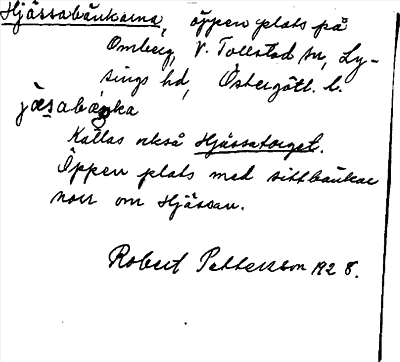 Hjässabänkarna, öppen plats på
Omberg, V. Tollstad sn, Ly-
sings hd, Östergötl. l.
jæsabäŋka
Kallas också Hjässatorget.
Öppen plats med sittbänkar
norr om Hjässan.
Robert Pettersson 1928.